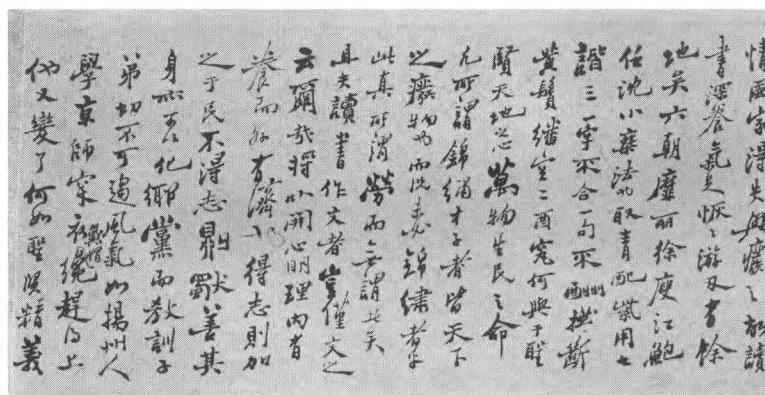 情國家得失興廢之故讀
書深養氣足恢恢游刃有餘
地矣六朝靡丽徐庾江鮑
任沈小乘法也取青配紫用七
諧三一字不合一句不酬撚斷
黄鬚繙空二酉究何與于聖
賢天地之心萬物生民之命
凡所謂錦繡才子者皆天下
之廢物也而況未必錦繡者乎
此真所謂勞而無謂者矣
且夫讀書作文者豈僅文之
云爾哉將以開心明理內有
養而外有濟也得志則加
之于民不得志則獨善其
身亦可以化鄉黨而教訓子
弟切不可趨風氣如揚州人
學京師穿衣戴帽纔趕得上
他又變了何如聖賢精義